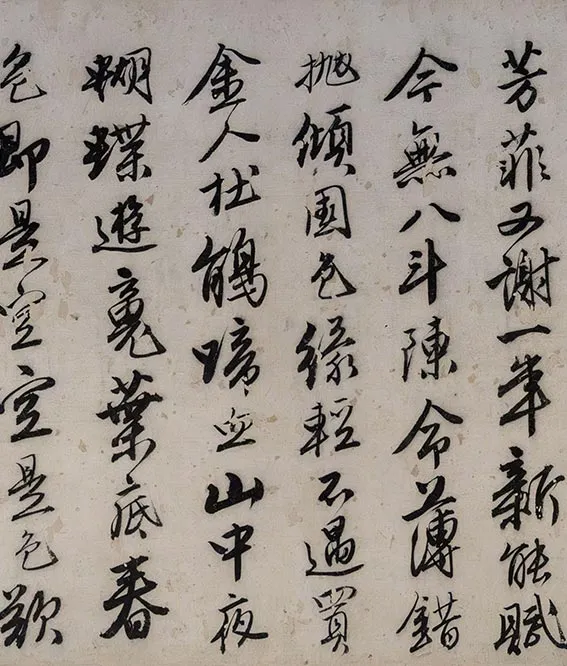 芳菲又謝一年新能賦
今無八斗陳命薄錯
拋傾國色緣輕不遇買
金人杜鵑啼血山中夜
蝴蝶遊魂葉底春
色即是空空是色